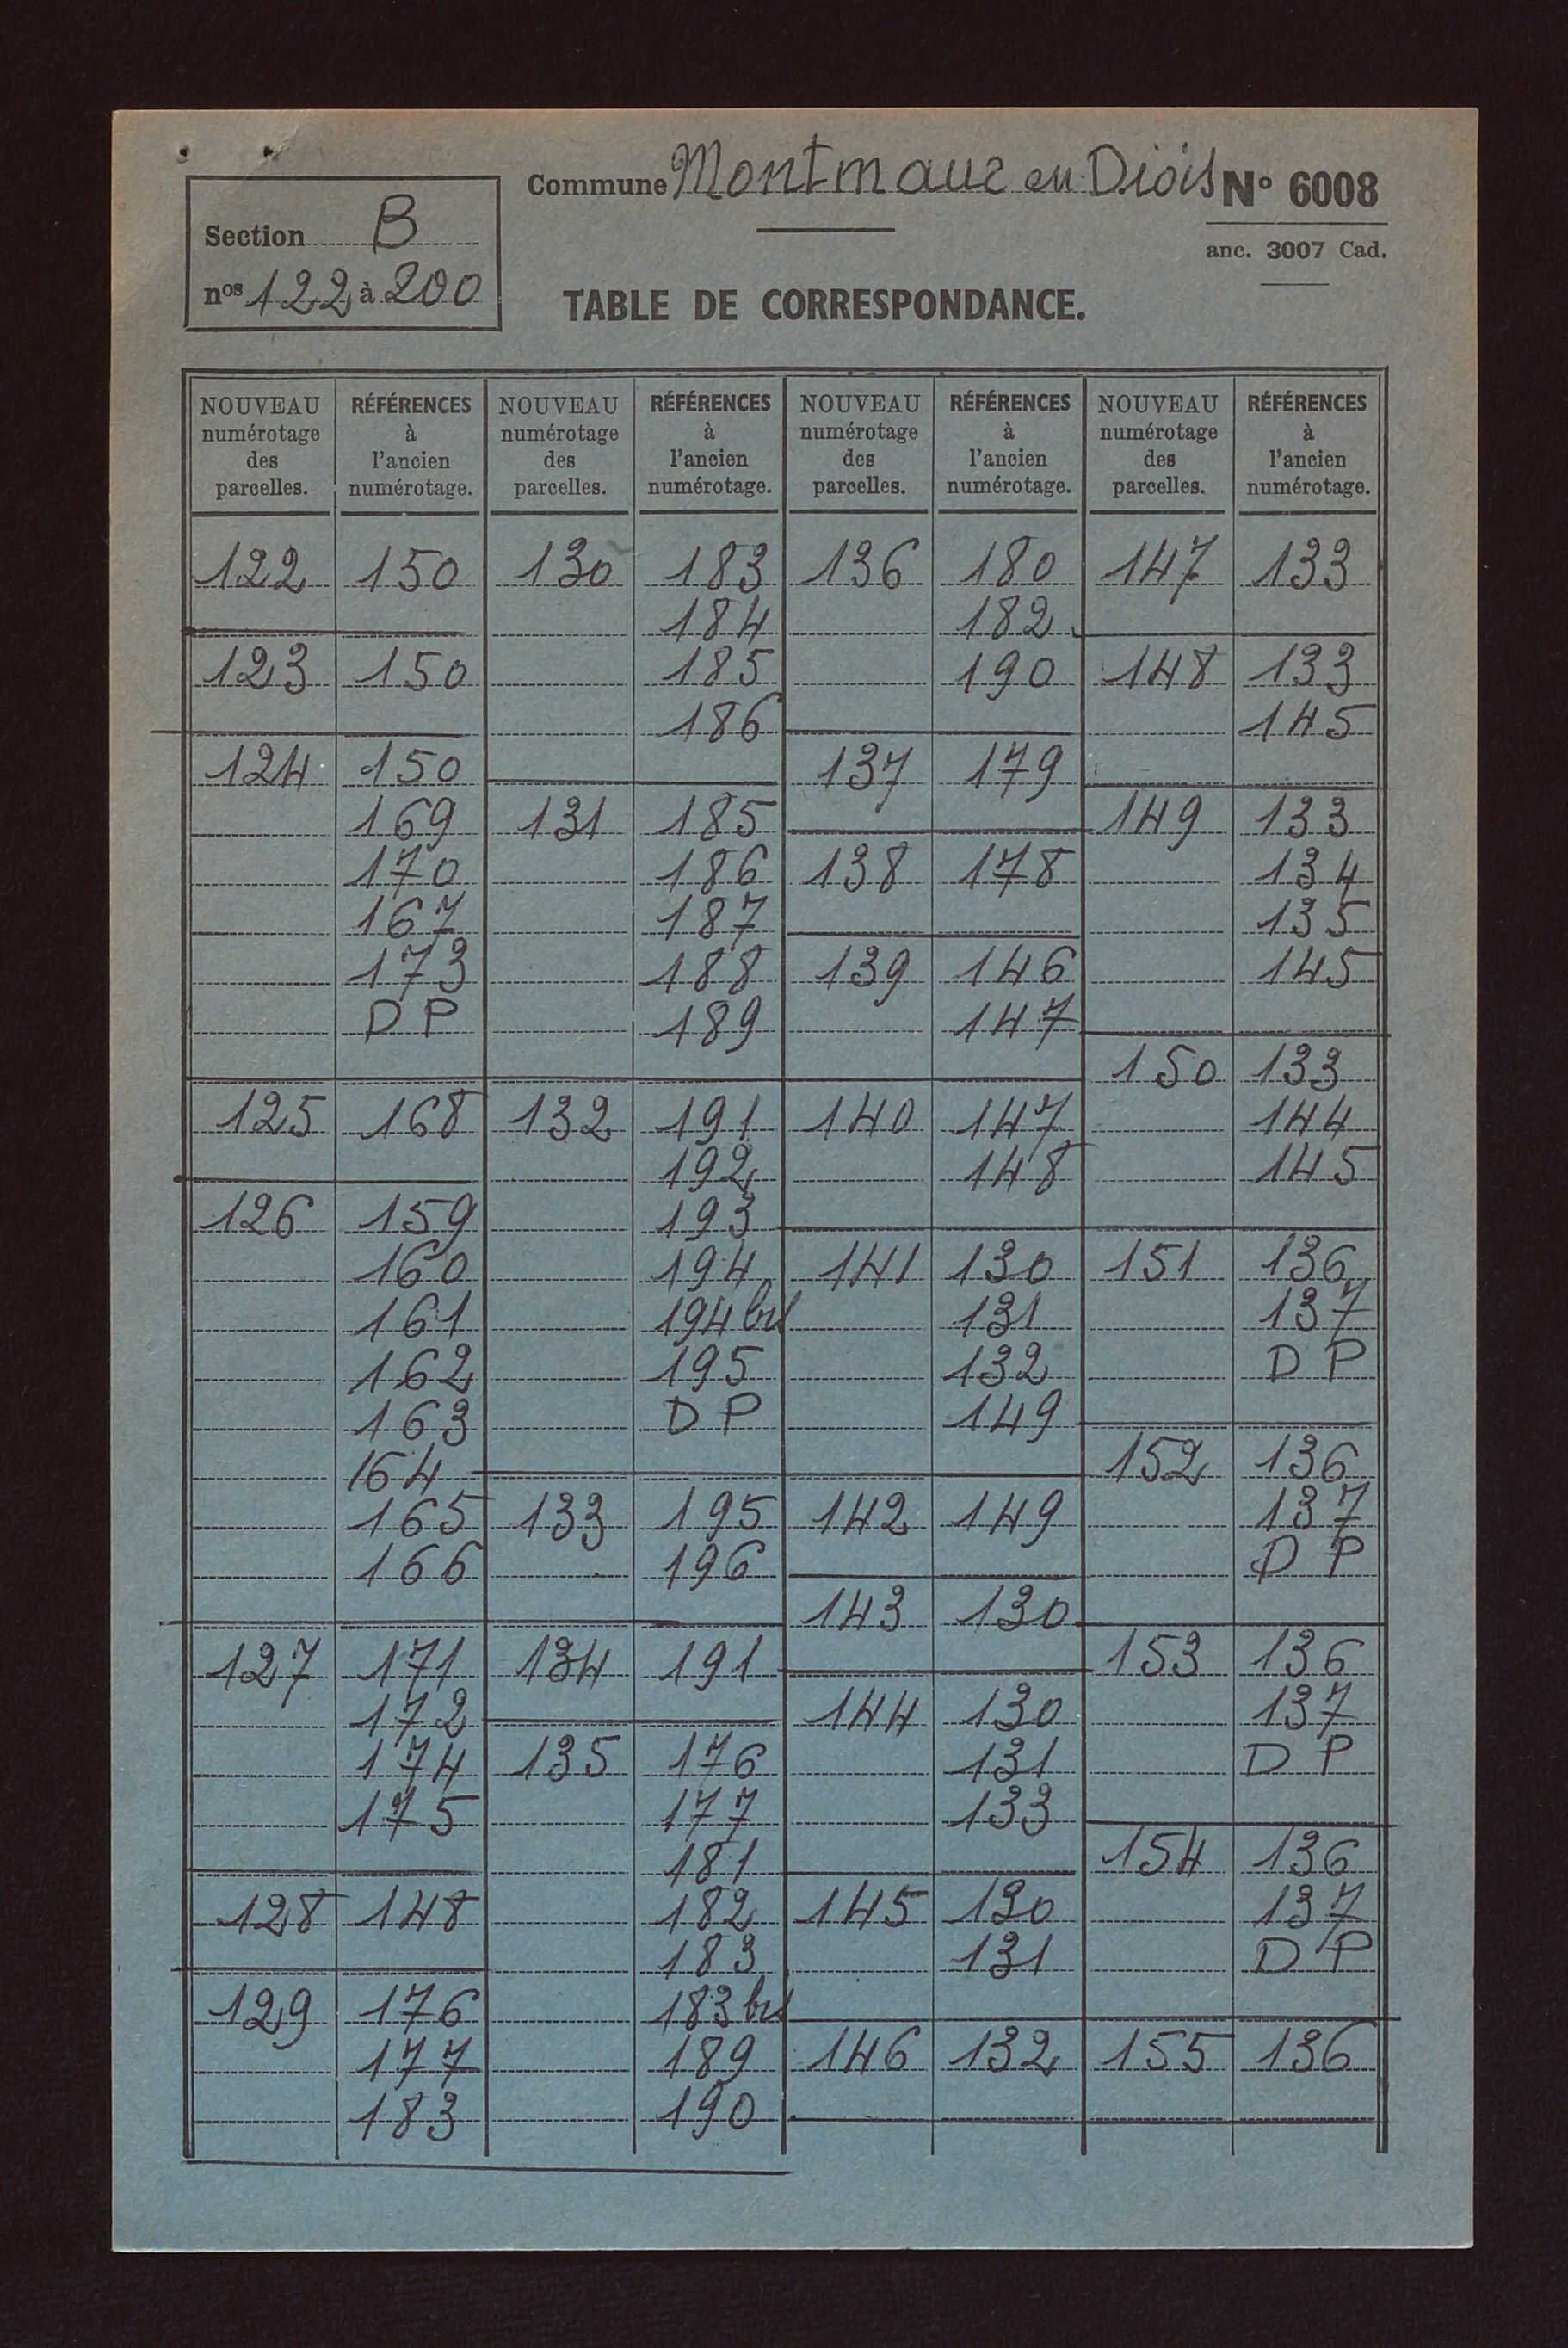 Commune Montmaur en Diois N° 6008
anc. 3007 Cad.
Section B
nos 122 à 200
TABLE DE CORRESPONDANCE.
NOUVEAU numérotage des parcelles. RÉFÉRENCES à l'ancien numérotage. NOUVEAU numérotage des parcelles. RÉFÉRENCES à l'ancien numérotage. NOUVEAU numérotage des parcelles. RÉFÉRENCES à l'ancien numérotage. NOUVEAU numérotage des parcelles. RÉFÉRENCES à l'ancien numérotage.
122 150
123 150
124 150
169
170
167
173
D P
125 168
126 159
160
161
162
163
164
165
166
127 171
172
174
175
128 148
129 176
177
183
130 183
184
185
186
131 185
186
187
188
189
132 191
192
193
194
194 bis
195
D P
133 195
196
134 191
135 176
177
181
182
183
183 bis
189
190
136 180
182
190
137 179
138 178
139 146
147
140 147
148
141 130
131
132
149
142 149
143 130
144 130
131
133
145 130
131
146 132
147 133
148 133
145
149 133
134
135
145
150 133
144
145
151 136
137
D P
152 136
137
D P
153 136
137
D P
154 136
137
D P
155 136